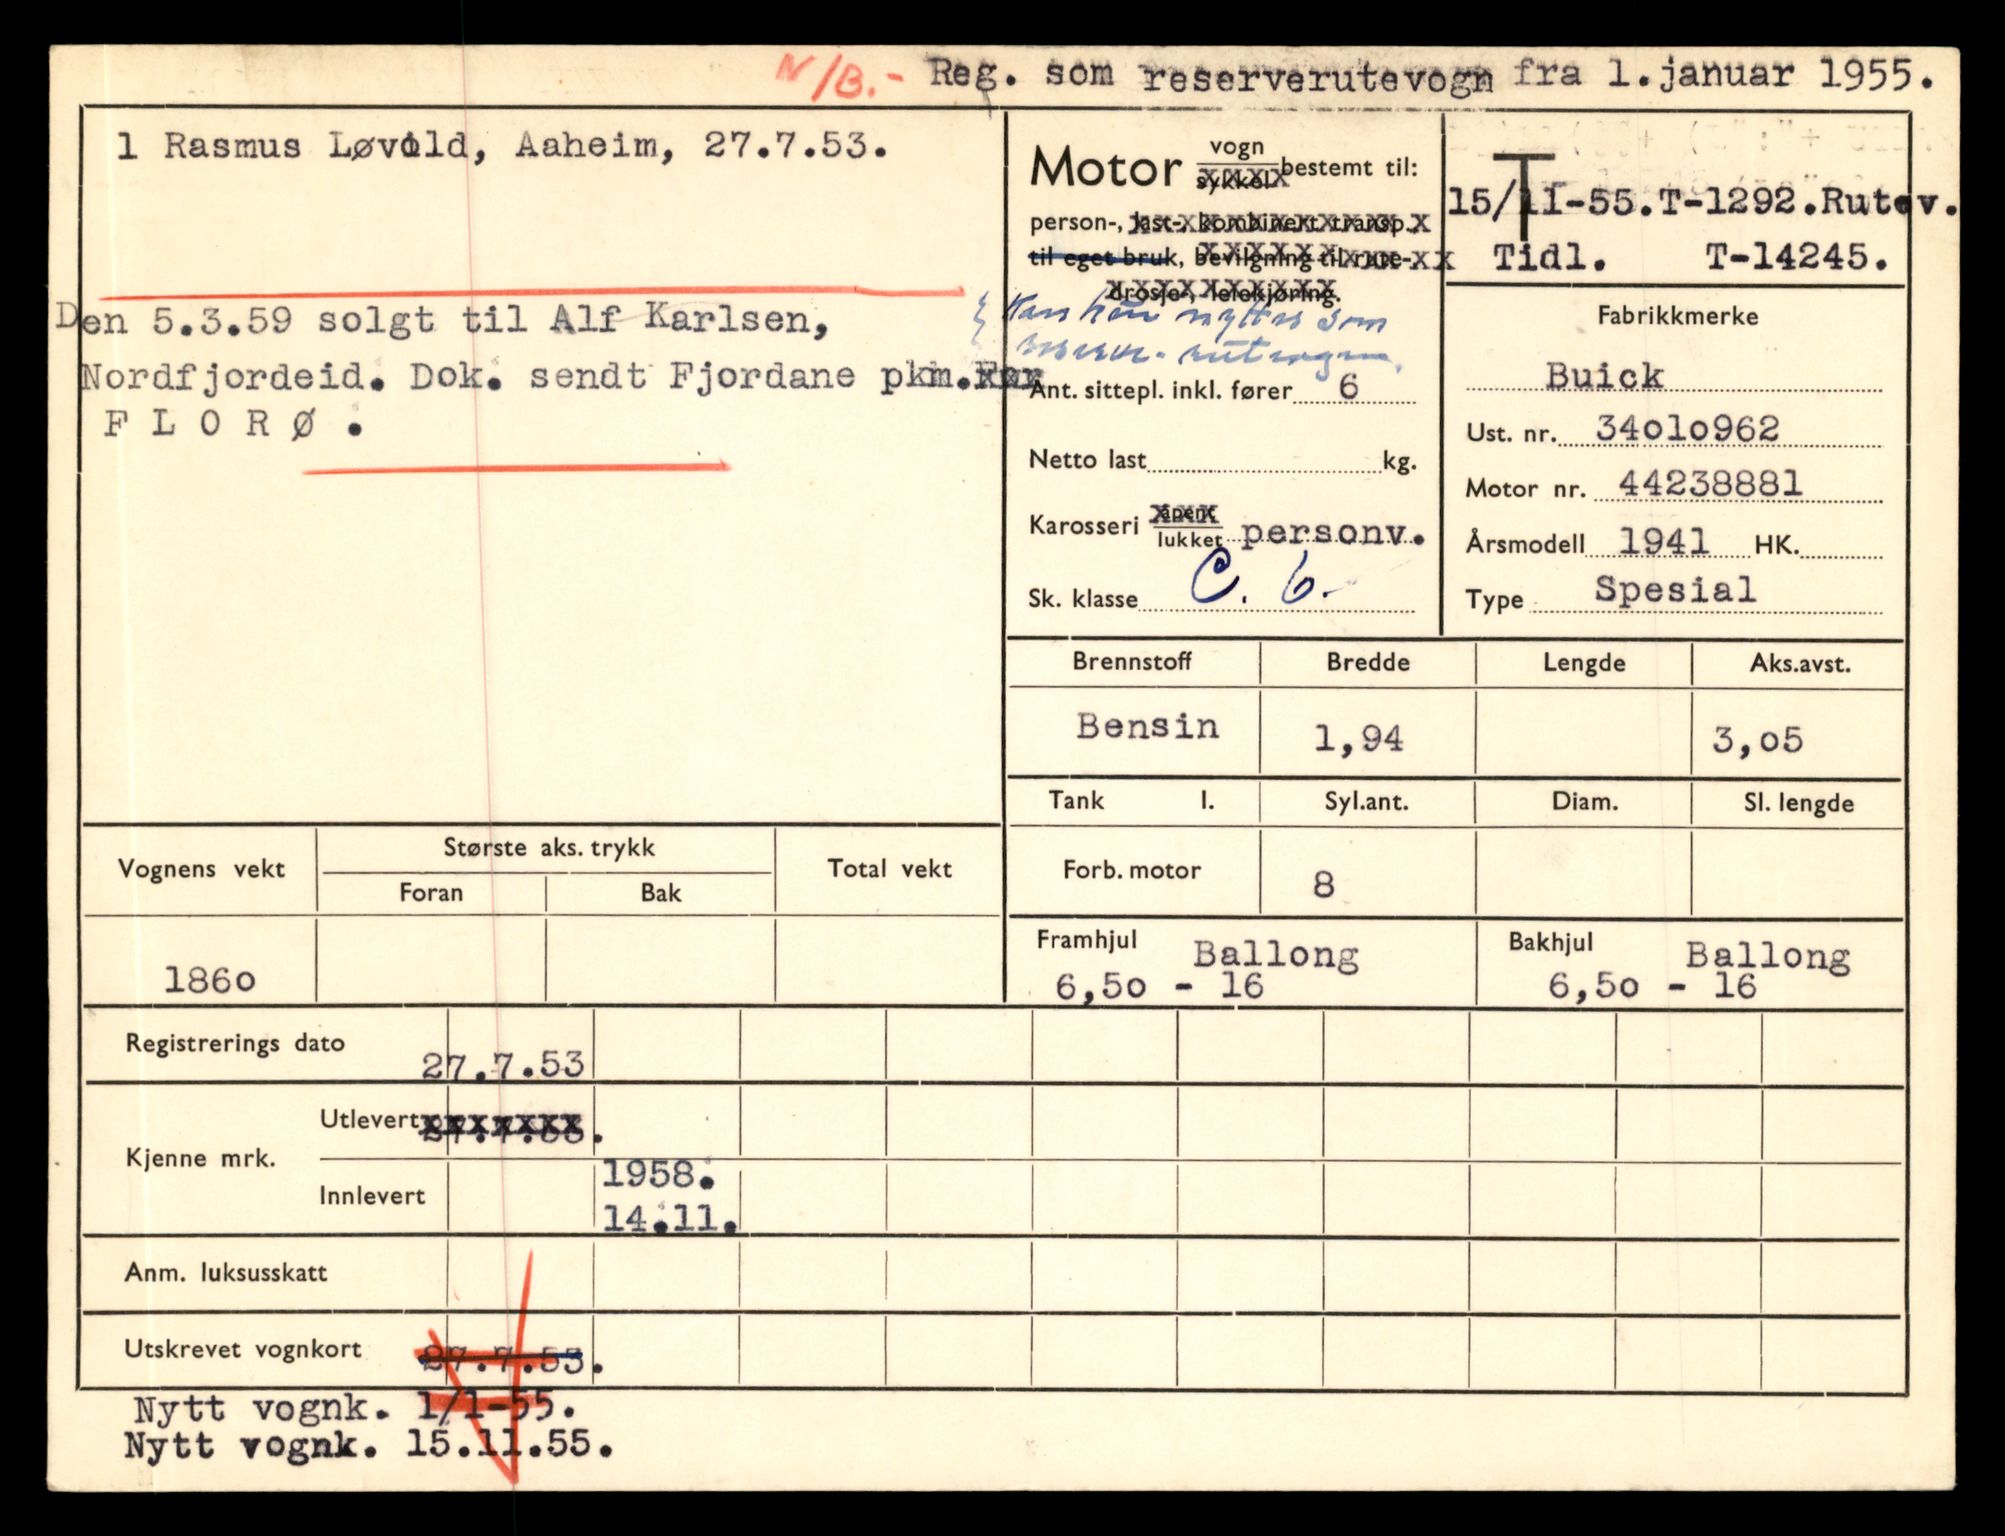 N/B.- Reg. som reserverutevogn fra 1.januar 1955.
1 Rasmus Løvold, Aaheim, 27.7.53.
Den 5.3.59 solgt til Alf Karlsen,
Nordfjordeid. Dok. sendt Fjordane pkm.
F L O R Ø .
Motor vogn
sykkel bestemt til:
person-, last-, kombinert transp.
til eget bruk, bevilgning til rute-
drosje-, leiekjøring.
Kan kun nyttes som
reserve-rutevogn.
Ant. sittepl. inkl. fører 6
Netto last kg.
Karosseri åpent
lukket personv.
Sk. klasse C. 6.-
T
15/11-55.T-1292.Rutev.
Tidl. T-14245.
Fabrikkmerke
Buick
Ust. nr. 34010962
Motor nr. 44238881
Årsmodell 1941 HK.
Type Spesial
Brennstoff Bredde Lengde Aks.avst.
Bensin 1,94 3,05
Tank l. Syl.ant. Diam. Sl. lengde
Forb. motor 8
Framhjul Ballong
6,50 - 16
Bakhjul Ballong
6,50 - 16
Vognens vekt Største aks. trykk Total vekt
Foran Bak
1860
Registrerings dato 27.7.53
Kjenne mrk. Utlevert 27.7.53.
Innlevert 1958.
14.11.
Anm. luksusskatt
Utskrevet vognkort 27.7.53.
Nytt vognk. 1/1-55.
Nytt vognk. 15.11.55.